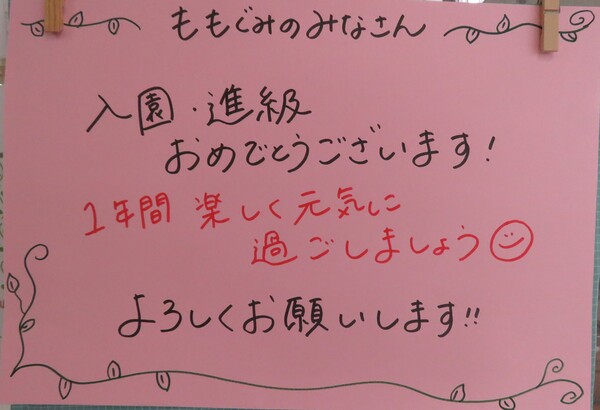 ももぐみのみなさん
入園・進級
おめでとうございます!
1年間 楽しく元気に
過ごしましょう
よろしくお願いします!!